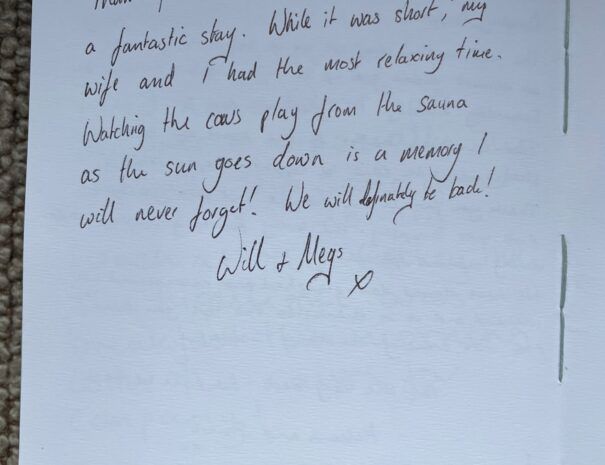 a fantastic stay. While it was short, my
wife and i had the most relaxing time.
Watching the cows play from the sauna
as the sun goes down is a memory I
will never forget! We will definately be back!
Will + Megs
x